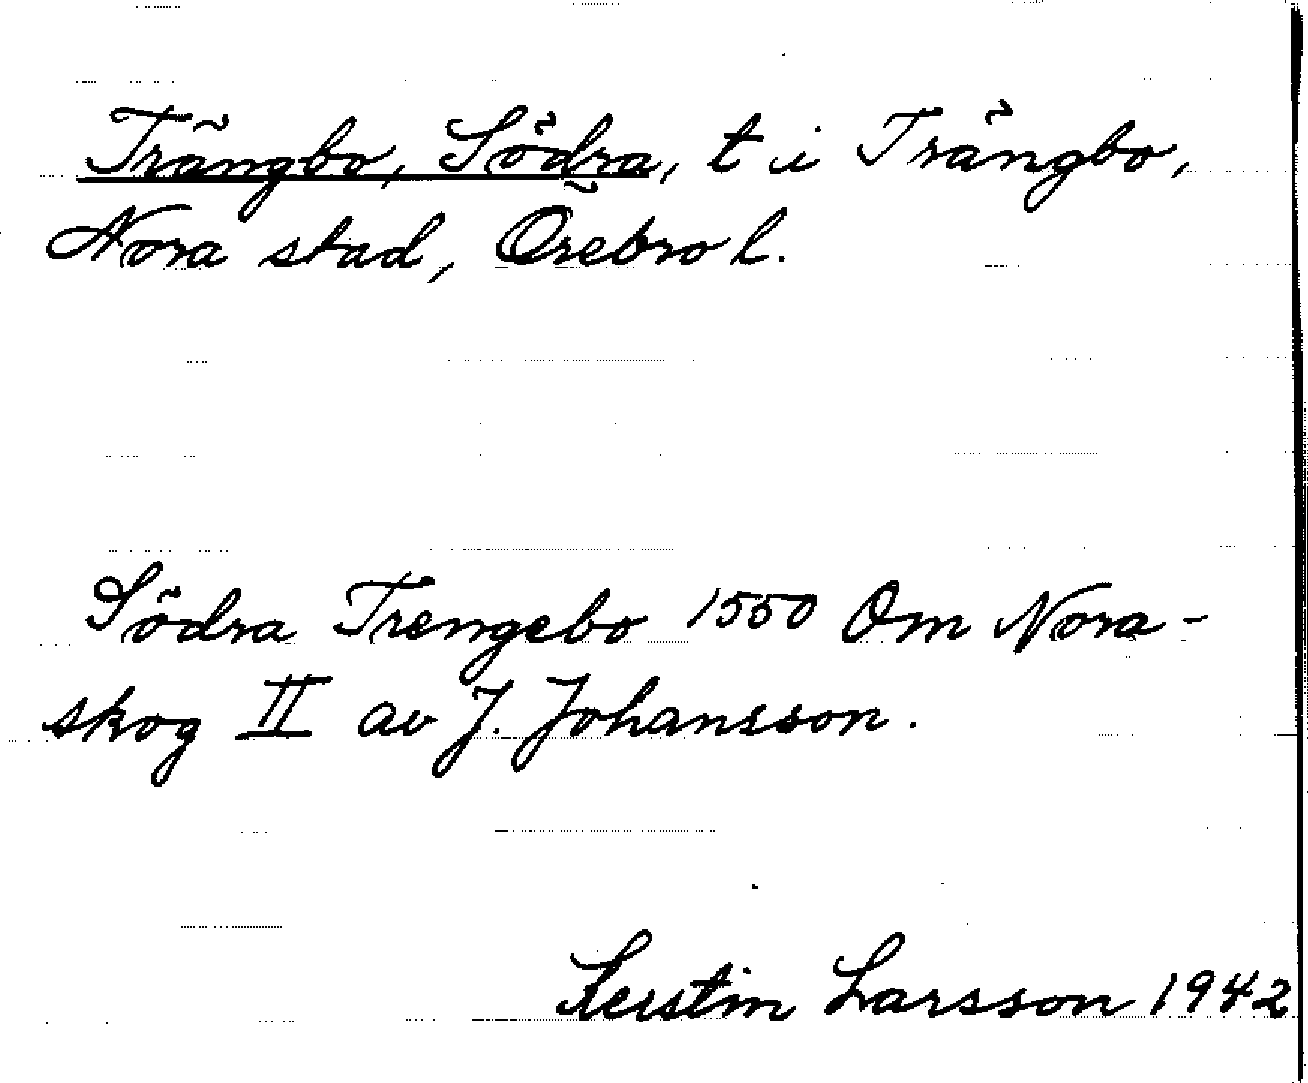 Trängbo, Södra, t i Trängbo,
Nora stad, Örebro l.
Södra Trengebo 1550 Om Nora-
skog II av J. Johansson.
Kerstin Larsson 1942